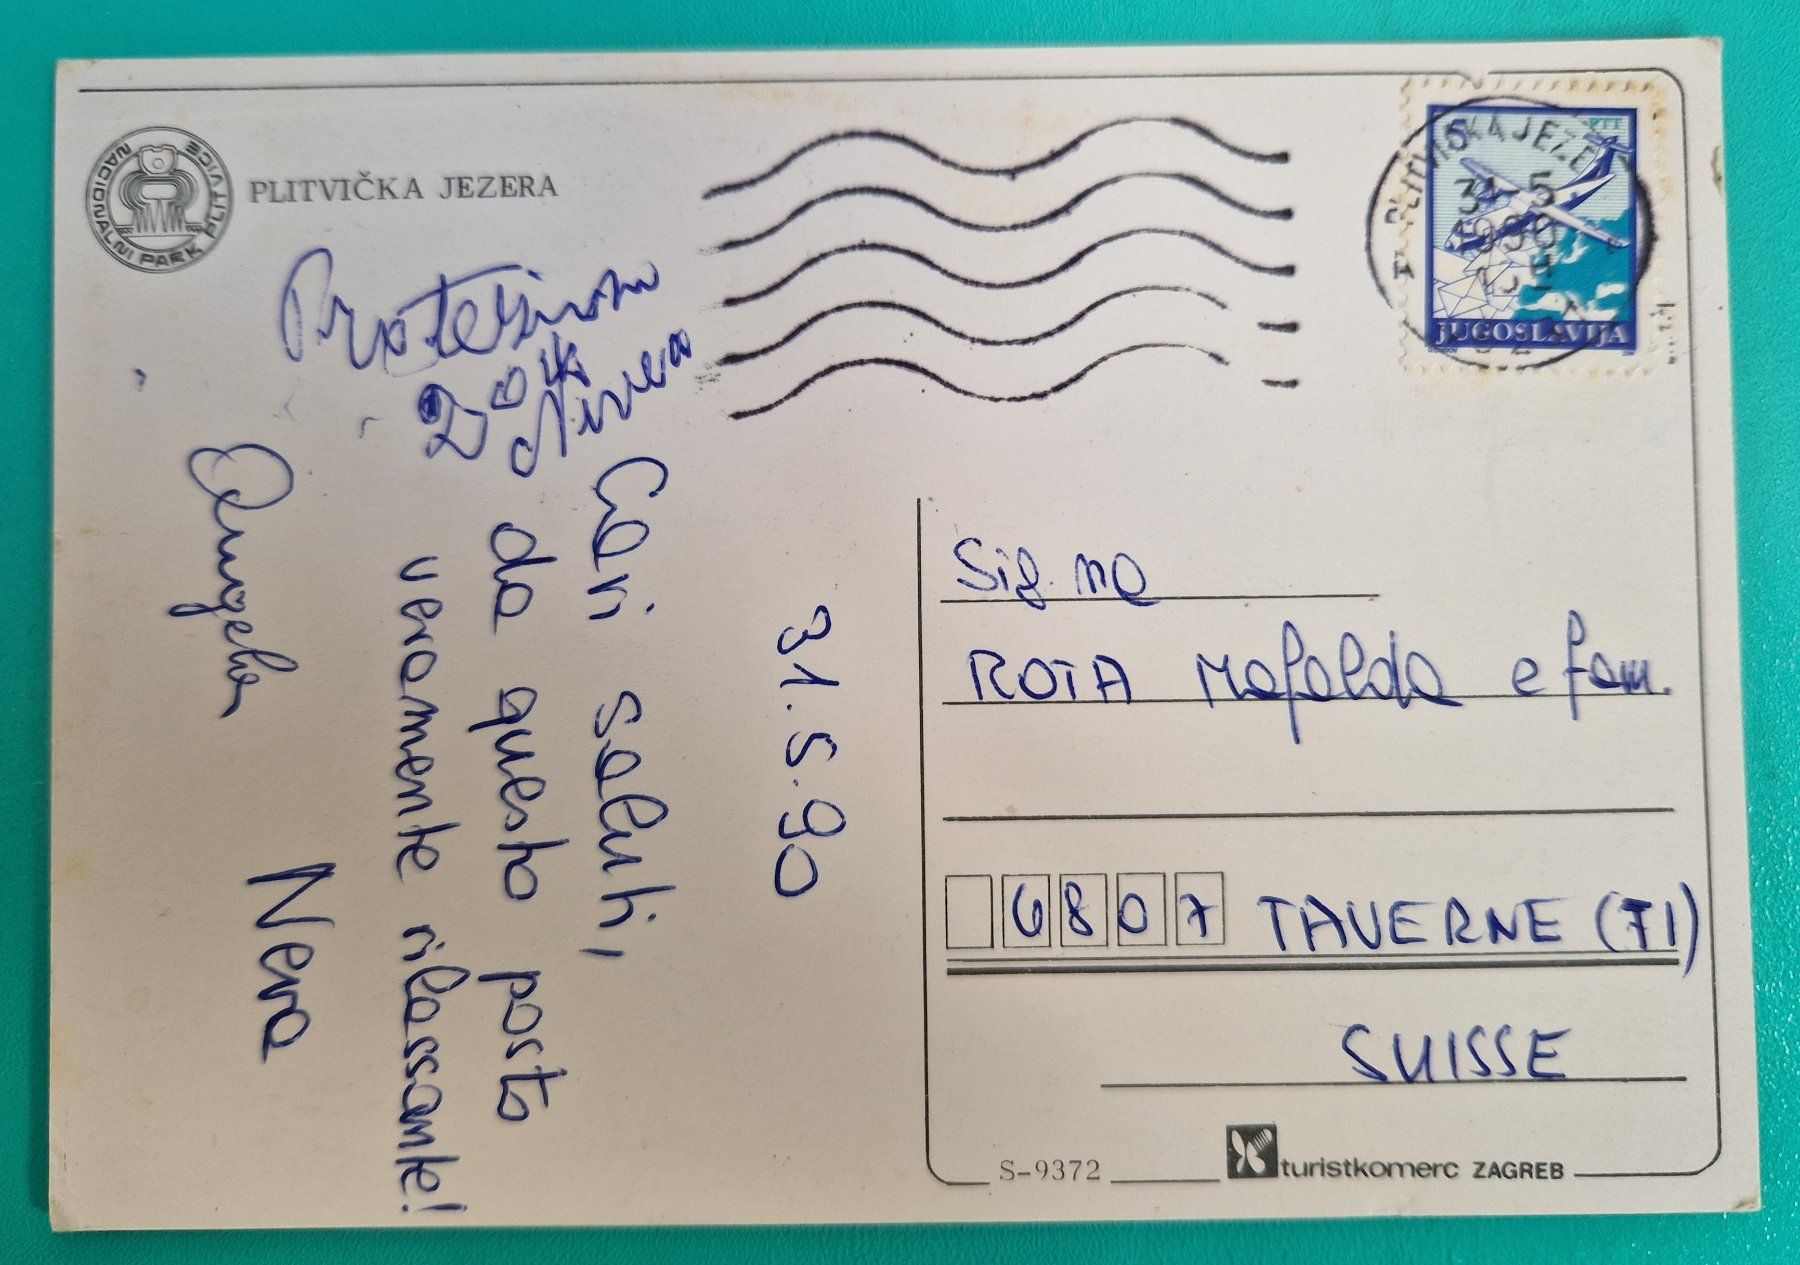 NACIONALNI PARK PLITVICE
PLITVIČKA JEZERA
5
PTT
JUGOSLAVIJA
31 5
1990
31.5.90
Cari saluti,
da questo posto
veramente rilassante!
Angela
Nera
Sig.na
ROTA Mafalda e fam.
6807 TAVERNE (TI)
SUISSE
S-9372
turistkomerc ZAGREB